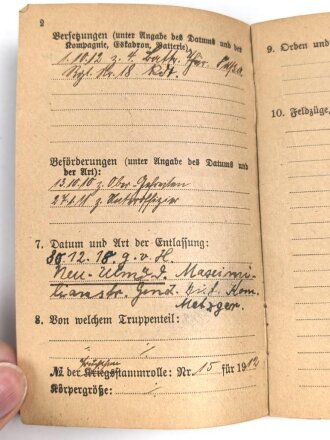 2
Versetzungen (unter Angabe des Datums und der
Kompagnie, Eskadron, Batterie):
1.10.12 z. 4. Battr.
Rgt. Nr. 18
Beförderungen (unter Angabe des Datums und
der Art):
13.10.10 z. Ober Gefreiten
z. Unteroffizier
7. Datum und Art der Entlassung:
30.12.18 g. v. H.
Neu-Ulm Maximi-
lianstr.
Metzger
8. Von welchem Truppenteil:
№ der Kriegsstammrolle: Nr. 15 für 1912
Körpergröße: /
9. Orden und
10. Feldzüge,